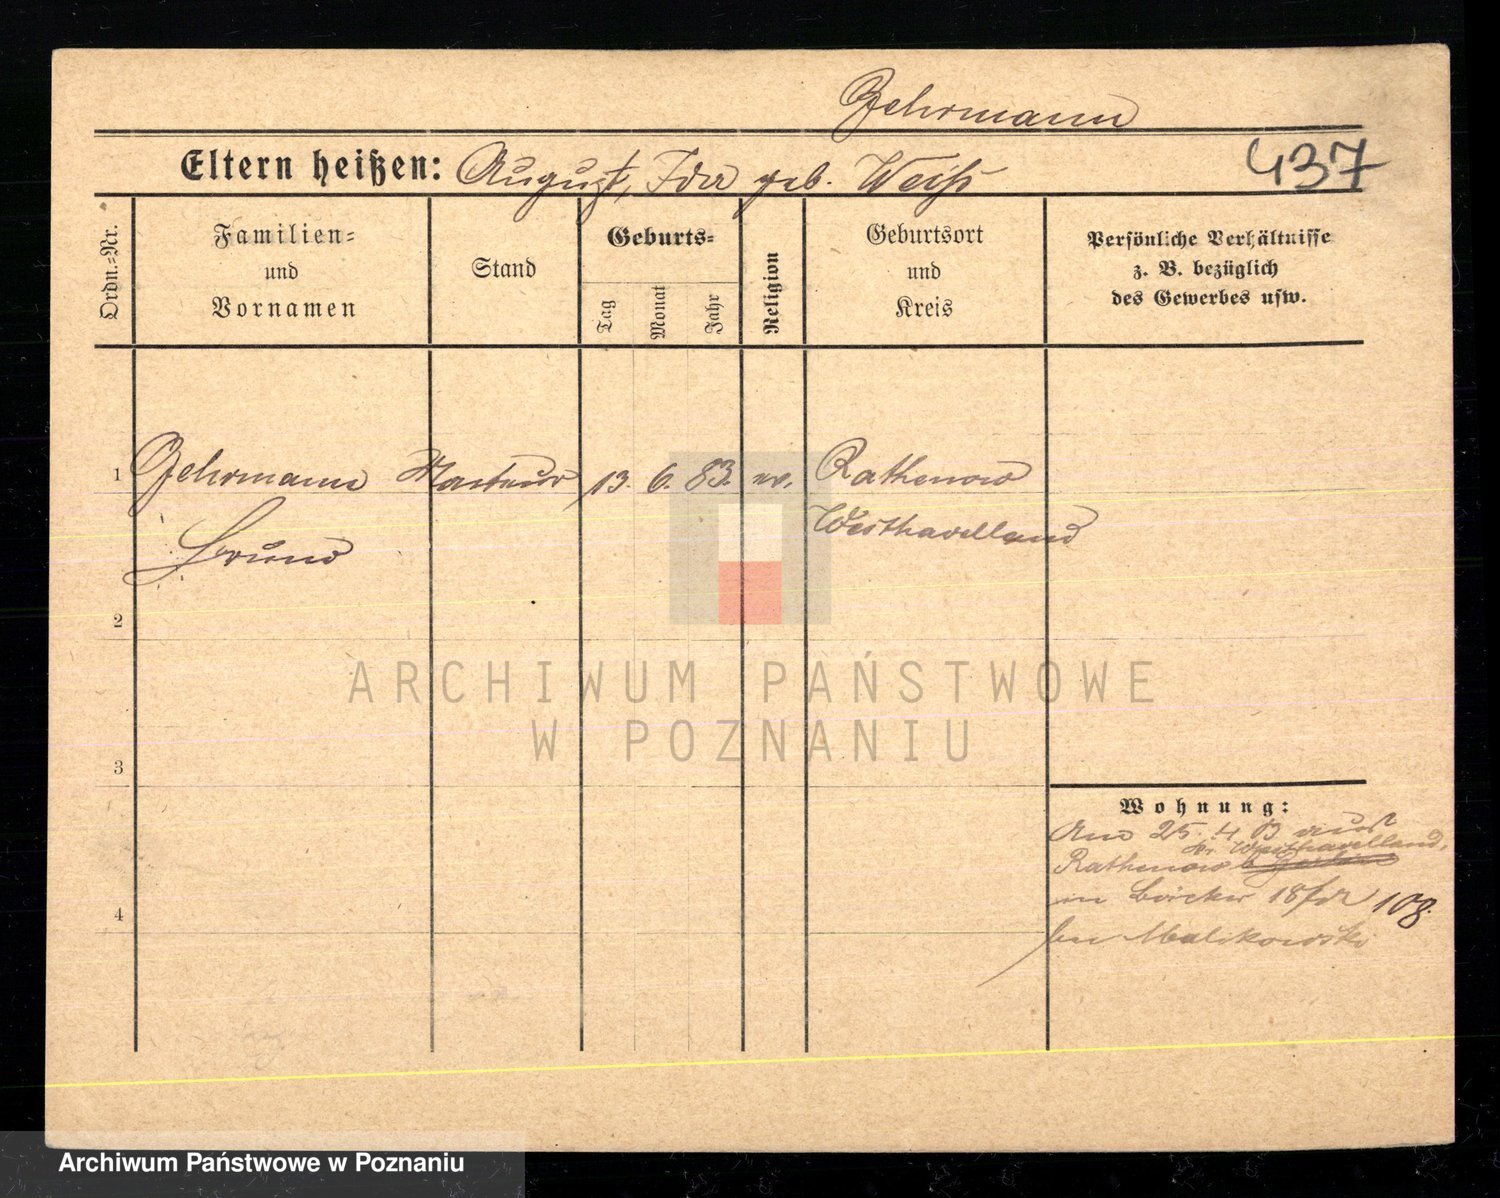 Gehrmann
Eltern heißen: August, Ida geb. Weiß
437
Ordn.=Nr.
Familien=
und
Vornamen
Stand
Geburts=
Tag
Monat
Jahr
Religion
Geburtsort
und
Kreis
Persönliche Verhältnisse
z. B. bezüglich
des Gewerbes usw.
1 Gehrmann 13. 6. 83. ev. Rathenow
Bruno Westhavelland
2
ARCHIWUM PAŃSTWOWE
W POZNANIU
3
Wohnung:
Am 25. 4 13 aus
Kr. Westhavelland,
Rathenow
in 108.
bei Malikowski
4
Archiwum Państwowe w Poznaniu